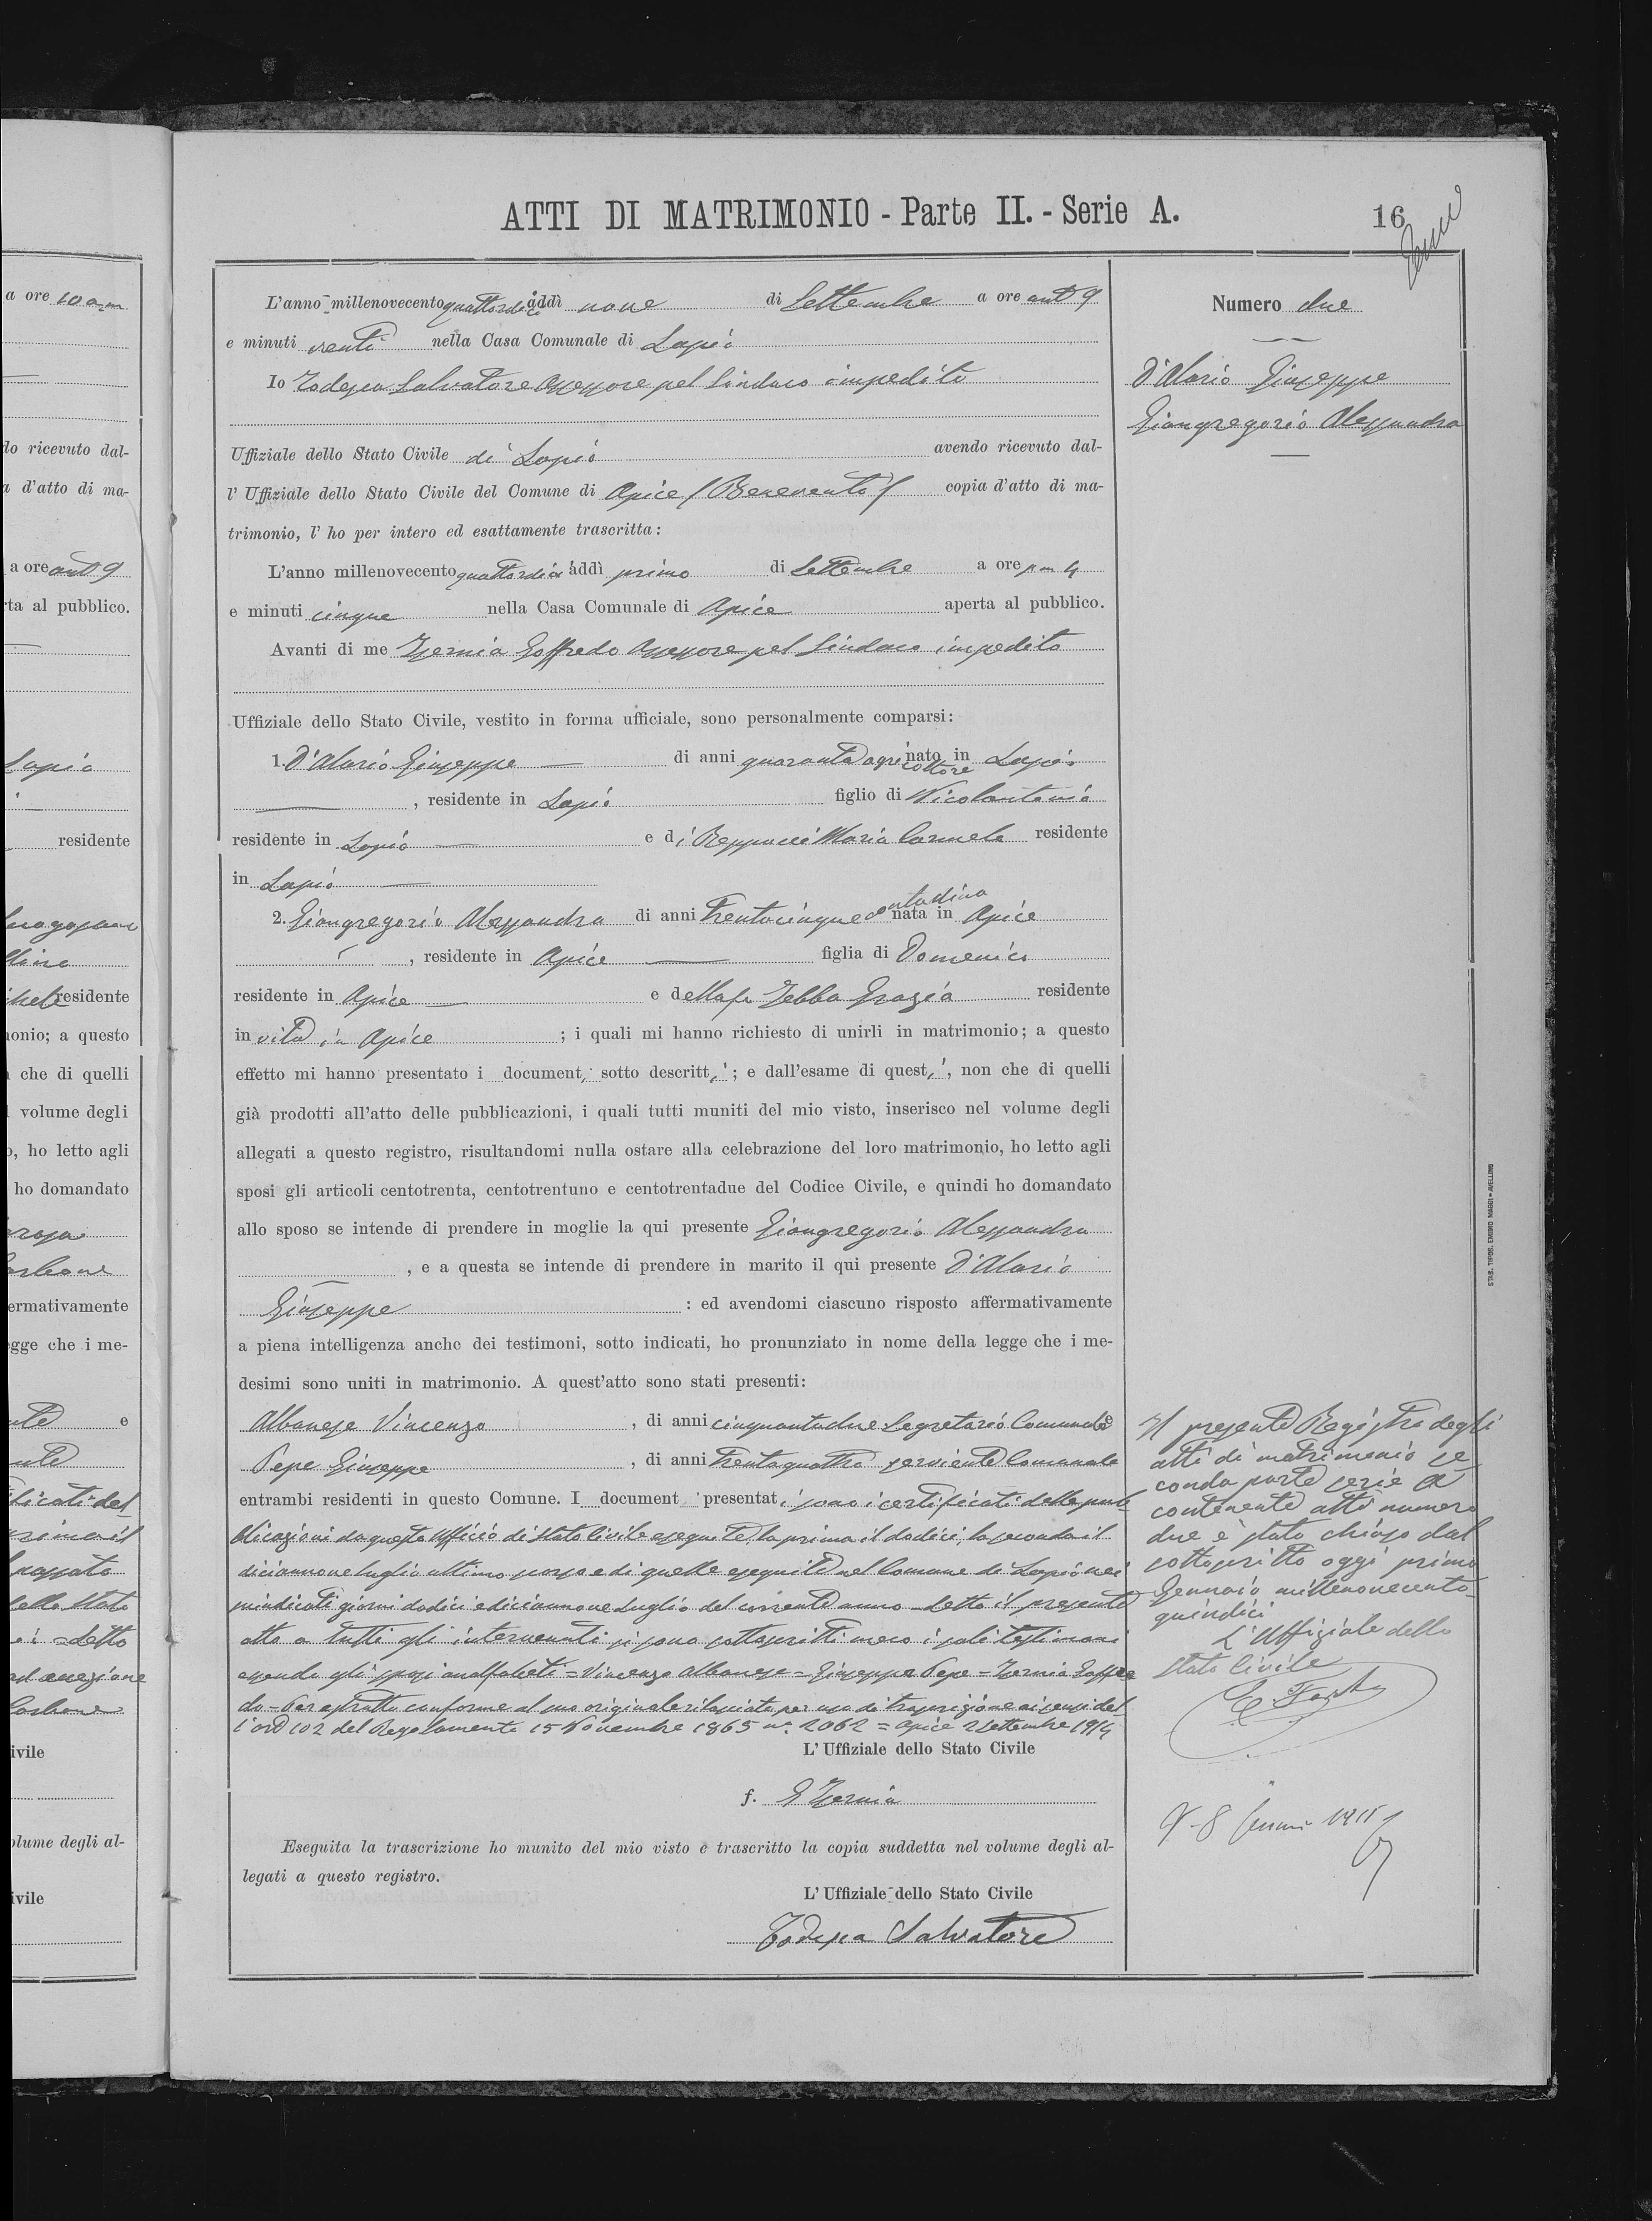 ATTI DI MATRIMONIO - Parte II. - Serie A.
16
L'anno millenovecento quattordici addì nove di Settembre a ore ant 9
e minuti venti nella Casa Comunale di Lapio
Io Todesca Salvatore Assessore pel Sindaco impedito
Uffiziale dello Stato Civile di Lapio avendo ricevuto dal-
l' Uffiziale dello Stato Civile del Comune di Apice (Benevento) copia d'atto di ma-
trimonio, l' ho per intero ed esattamente trascritta:
L'anno millenovecento quattordici addì primo di Settembre a ore pm 4
e minuti cinque nella Casa Comunale di Apice aperta al pubblico.
Avanti di me Izernia Goffredo Assessore pel Sindaco impedito
Uffiziale dello Stato Civile, vestito in forma ufficiale, sono personalmente comparsi:
1. D'Alario Giuseppe di anni quaranta agricoltore nato in Lapio
, residente in Lapio figlio di Nicolantonio
residente in Lapio e di Reppucci Maria Carmela residente
in Lapio
2. Giangregorio Alessandra di anni trentacinque contadina nata in Apice
, residente in Apice figlia di Domenico
residente in Apice e della fu Zebba Grazia residente
in vita in Apice ; i quali mi hanno richiesto di unirli in matrimonio; a questo
effetto mi hanno presentato i documenti sotto descritti ; e dall'esame di questi , non che di quelli
già prodotti all'atto delle pubblicazioni, i quali tutti muniti del mio visto, inserisco nel volume degli
allegati a questo registro, risultandomi nulla ostare alla celebrazione del loro matrimonio, ho letto agli
sposi gli articoli centotrenta, centotrentuno e centotrentadue del Codice Civile, e quindi ho domandato
allo sposo se intende di prendere in moglie la qui presente Giangregorio Alessandra
, e a questa se intende di prendere in marito il qui presente D'Alario
Giuseppe : ed avendomi ciascuno risposto affermativamente
a piena intelligenza anche dei testimoni, sotto indicati, ho pronunziato in nome della legge che i me-
desimi sono uniti in matrimonio. A quest'atto sono stati presenti:
Albanese Vincenzo , di anni cinquantadue Segretario Comunale e
Pepe Giuseppe , di anni trentaquattro serviente Comunale
entrambi residenti in questo Comune. I document presentati sono i certificati delle pub-
blicazioni da questo Ufficio di Stato Civile eseguite, la prima il dodici, la seconda il
diciannove luglio ultimo scorso e di quelle eseguite nel Comune di Lapio nei
suindicati giorni dodici e diciannove Luglio del corrente anno - Letto il presente
atto a tutti gli intervenuti si sono sottoscritti meco i soli testimoni
essendo gli sposi analfabeti = Vincenzo Albanese = Giuseppe Pepe = Izernia Goffre
do = Per estratto conforme al suo originale rilasciato per uso di trascrizione ai sensi del
l'ord 102 del Regolamento 15 Novembre 1865 n. 2062 = Apice 2 Settembre 1914
L' Uffiziale dello Stato Civile
f. G Izernia
Eseguita la trascrizione ho munito del mio visto e trascritto la copia suddetta nel volume degli al-
legati a questo registro.
L' Uffiziale dello Stato Civile
Todesca Salvatore
Numero due
D'Alario Giuseppe
Giangregorio Alessandra
Il presente Registro degli
atti di matrimonio se
conda parte serie A
contenente atti numero
due è stato chiuso dal
sottoscritto oggi primo
Gennaio millenovecento-
quindici
L'Uffiziale dello
Stato Civile
STAB. TIPOG. EMIDIO MAGGI - AVELLINO
a ore 10 am
do ricevuto dal-
a d'atto di ma-
a ore ant 9
rta al pubblico.
Lapio
residente
residente
onio; a questo
che di quelli
volume degli
o, ho letto agli
ho domandato
ermativamente
egge che i me-
e
blicati del
passato
dello Stato
Letto
Carbone
ivile
olume degli al-
ivile